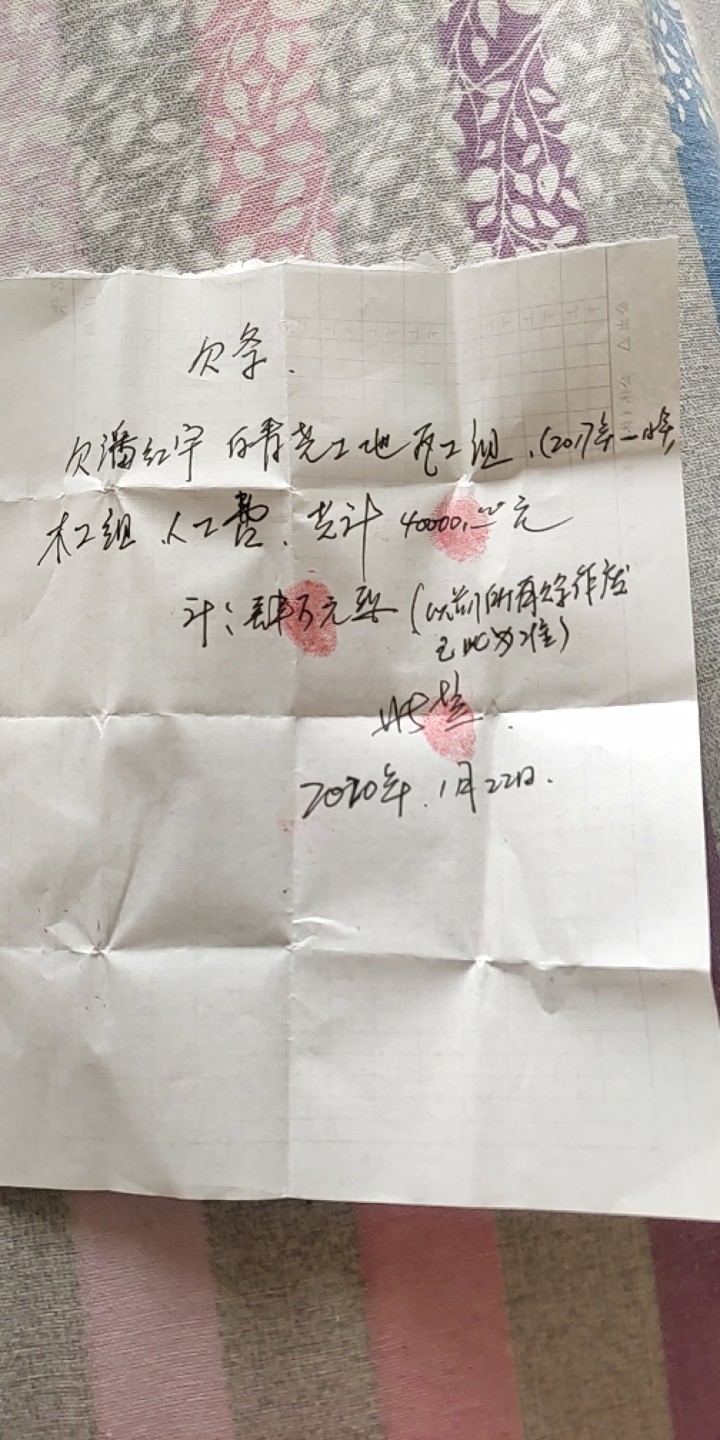 欠条.
欠潘红宇 工地瓦工组.(2017年一18年)
木工组.人工费、共计40000.00元
计:肆万元整(以前所有欠条作废
已此为准)
2020年.1月22日.